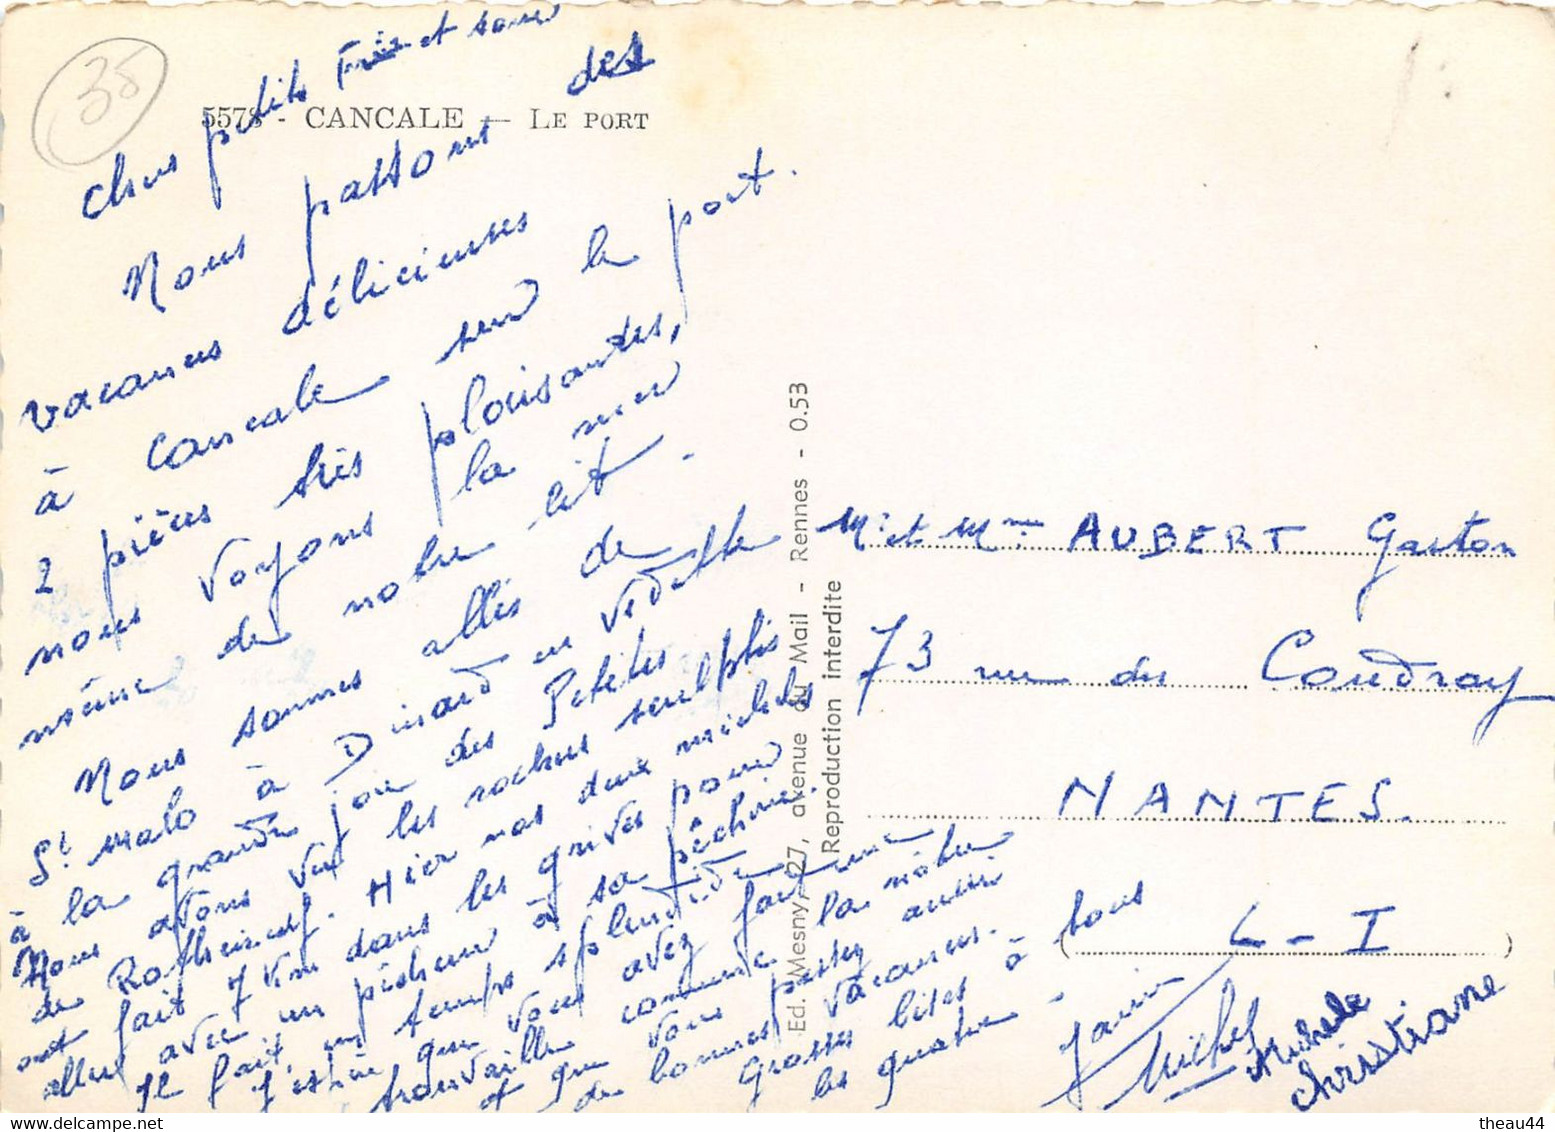 38
5578 - CANCALE — LE PORT
Chers petits Frère et soeur
Nous passons des
vacances délicieuses
à Cancale sur le port.
2 pièces très plaisantes,
nous voyons la mer
même de notre lit.
Nous sommes allés de
St malo à Dinard en vedette
à la grande joie des Petites
Nous avons vu les rochers sculptés
de Rotheneuf. Hier nos deux michels
ont fait 7 km dans les
aller avec un pêcheur à sa pêcherie.
Il fait un temps splendide
J'estime que vous avez fait une
trouvaille comme la nôtre
et que vous passez aussi
de bonnes vacances.
Grosses bises à tous
les quatre.
Janine
Michel
Michele
Christiane
Ed. Mesny, 27, avenue du Mail - Rennes - 0.53
Reproduction interdite
Mr et Mme AUBERT Gaston
73 rue du Coudray
NANTES.
L - I
theau44